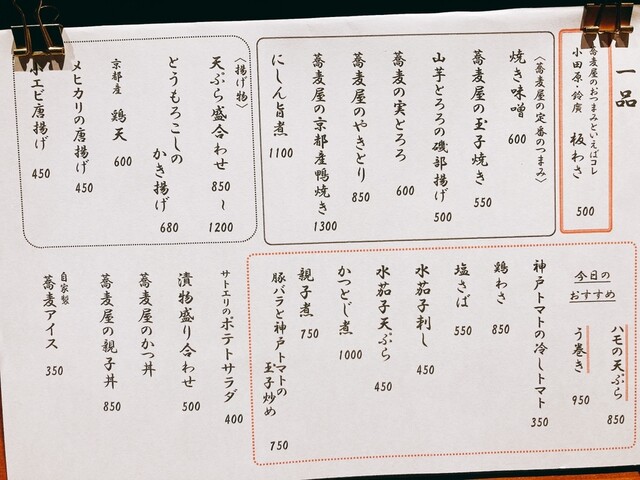 一品
蕎麦屋のおつまみといえばコレ
小田原・鈴廣 板わさ 500
〈蕎麦屋の定番のつまみ〉
焼き味噌 600
蕎麦屋の玉子焼き 550
山芋とろろの磯部揚げ 500
蕎麦の実とろろ 600
蕎麦屋のやきとり 850
蕎麦屋の京都産鴨焼き 1300
にしん旨煮 1100
〈揚げ物〉
天ぷら盛合わせ 850～1200
とうもろこしの
かき揚げ 680
京都産 鶏天 600
メヒカリの唐揚げ 450
小エビ唐揚げ 450
今日の
おすすめ
ハモの天ぷら 850
う巻き 950
神戸トマトの冷しトマト 350
鶏わさ 850
塩さば 550
水茄子刺し 450
水茄子天ぷら 450
かつとじ煮 1000
親子煮 750
豚バラと神戸トマトの
玉子炒め 750
サトエリのポテトサラダ 400
漬物盛り合わせ 500
蕎麦屋のかつ丼
蕎麦屋の親子丼 850
自家製
蕎麦アイス 350